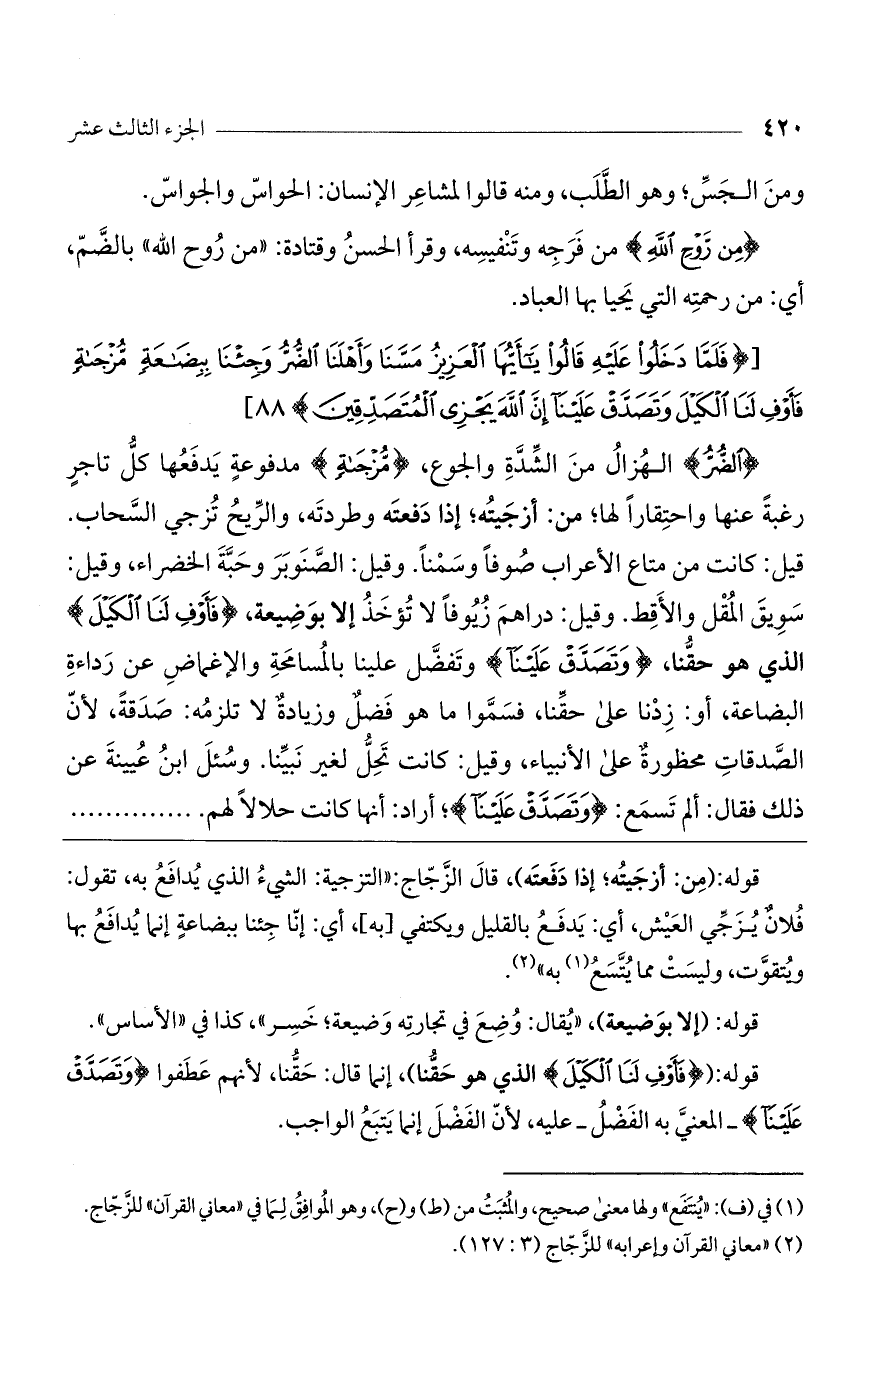 ٤٢٠ الجزء الثالث عشر
ومنَ الـجَسِّ؛ وهو الطَّلَب، ومنه قالوا لمشاعِر الإنسان: الحواسّ والجواسّ.
﴿مِن رَّوْحِ ٱللَّهِ﴾ من فَرَجِه وتَنْفيسِه، وقرأ الحسنُ وقتادة: «من رُوح الله» بالضَّمّ،
أي: من رحمتِه التي يَحيا بها العباد.
[﴿فَلَمَّا دَخَلُوا۟ عَلَيْهِ قَالُوا۟ يَـٰٓأَيُّهَا ٱلْعَزِيزُ مَسَّنَا وَأَهْلَنَا ٱلضُّرُّ وَجِئْنَا بِبِضَـٰعَةٍ مُّزْجَىٰةٍ
فَأَوْفِ لَنَا ٱلْكَيْلَ وَتَصَدَّقْ عَلَيْنَآ إِنَّ ٱللَّهَ يَجْزِى ٱلْمُتَصَدِّقِينَ﴾ ٨٨]
﴿ٱلضُّرُّ﴾ الـهُزالُ منَ الشِّدَّةِ والجوع، ﴿مُّزْجَىٰةٍ﴾ مدفوعةٍ يَدفَعُها كلُّ تاجرٍ
رغبةً عنها واحتِقاراً لها؛ من: أزجَيتُه؛ إذا دَفعتَه وطردتَه، والرِّيحُ تُزجي السَّحاب.
قيل: كانت من متاع الأعراب صُوفاً وسَمْناً. وقيل: الصَّنَوبَرَ وحَبَّةَ الخضراء، وقيل:
سَوِيقَ المُقْل والأَقِط. وقيل: دراهمَ زُيُوفاً لا تُؤخَذُ إلا بوَضِيعة، ﴿فَأَوْفِ لَنَا ٱلْكَيْلَ﴾
الذي هو حقُّنا، ﴿وَتَصَدَّقْ عَلَيْنَآ﴾ وتَفضَّل علينا بالمُسامَحَةِ والإغماضِ عن رَداءةِ
البضاعة، أو: زِدْنا علىٰ حقِّنا، فسَمَّوا ما هو فَضلٌ وزيادةٌ لا تلزمُه: صَدَقةً، لأنّ
الصَّدقاتِ محظورةٌ علىٰ الأنبياء، وقيل: كانت تَحِلُّ لغير نَبيِّنا. وسُئلَ ابنُ عُيينةَ عن
ذلك فقال: ألم تَسمَع: ﴿وَتَصَدَّقْ عَلَيْنَآ﴾؛ أراد: أنها كانت حلالاً لهم. ..............
قوله:(مِن: أزجَيتُه؛ إذا دَفَعتَه)، قالَ الزَّجّاج:«التزجية: الشيءُ الذي يُدافَعُ به، تقول:
فُلانٌ يُـزَجِّي العَيْش، أي: يَدفَـعُ بالقليل ويكتفي [به]، أي: إنّا جِئنا ببضاعةٍ إنما يُدافَعُ بها
ويُتقوَّت، وليسَتْ مما يُتَّسَعُ(١) به»(٢).
قوله: (إلا بوَضيعة)، «يُقال: وُضِعَ في تجارتِه وَضيعة؛ خَسِـر»، كذا في «الأساس».
قوله:(﴿فَأَوْفِ لَنَا ٱلْكَيْلَ﴾ الذي هو حَقُّنا)، إنما قال: حَقُّنا، لأنهم عَطَفوا ﴿وَتَصَدَّقْ
عَلَيْنَآ﴾ ـ المعنيَّ به الفَضْلُ ـ عليه، لأنّ الفَضْلَ إنما يَتبَعُ الواجب.
(١) في (ف): «يُنتَفَع» ولها معنىٰ صحيح، والمُثبَتُ من (ط) و(ح)، وهو المُوافِقُ لِـمَا في «معاني القرآن» للزَّجّاج.
(٢) «معاني القرآن وإعرابه» للزَّجّاج (٣ : ١٢٧).